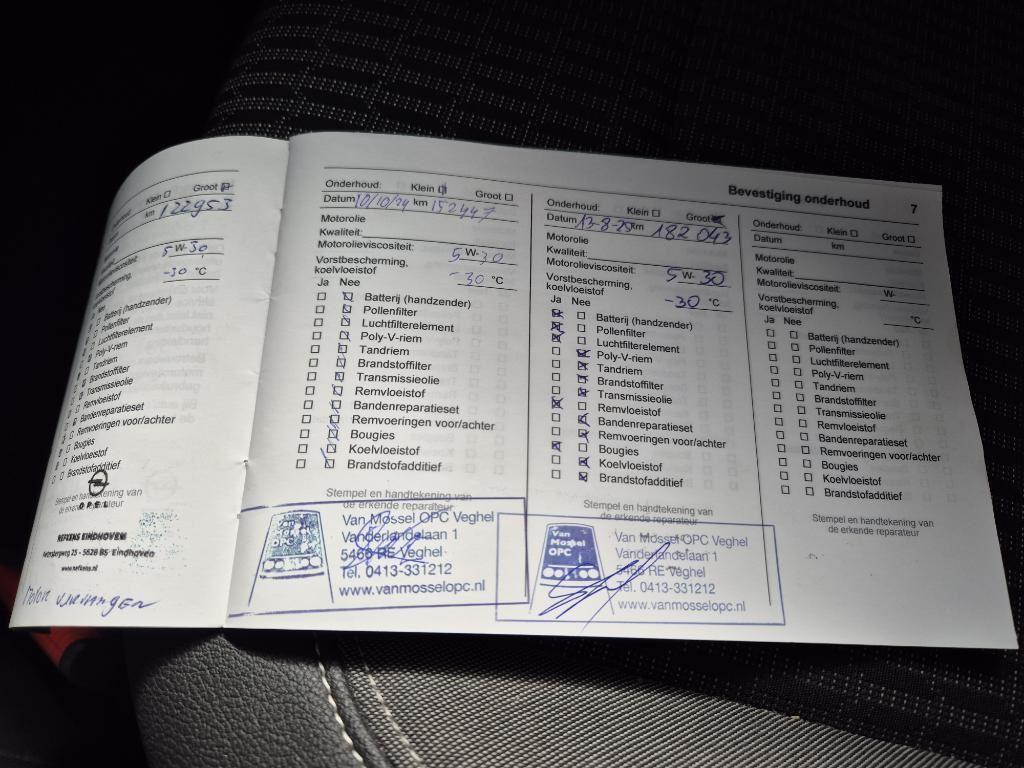 Bevestiging onderhoud 7
Klein Groot
km 122953
5 W-30
viscositeit:
-30 °C
Batterij (handzender)
Pollenfilter
Luchtfilterelement
Poly-V-riem
Tandriem
Brandstoffilter
Transmissieolie
Remvloeistof
Bandenreparatieset
Remvoeringen voor/achter
Bougies
Koelvloeistof
Brandstofadditief
Stempel en handtekening van
de erkende reparateur
OPEL
REFKENS EINDHOVEN
5628 BS Eindhoven
www.nefkens.nl
vervangen
Onderhoud: Klein Groot
Datum 10/10/24 km 152447
Motorolie
Kwaliteit:
Motorolieviscositeit: 5 W-30
Vorstbescherming,
koelvloeistof -30 °C
Ja Nee
Batterij (handzender)
Pollenfilter
Luchtfilterelement
Poly-V-riem
Tandriem
Brandstoffilter
Transmissieolie
Remvloeistof
Bandenreparatieset
Remvoeringen voor/achter
Bougies
Koelvloeistof
Brandstofadditief
Stempel en handtekening van
de erkende reparateur
Van Mossel OPC Veghel
Vanderlandelaan 1
5466 RE Veghel
Tel. 0413-331212
www.vanmosselopc.nl
Onderhoud: Klein Groot
Datum 13-8-25 km 182043
Motorolie
Kwaliteit:
Motorolieviscositeit: 5 W-30
Vorstbescherming,
koelvloeistof -30 °C
Ja Nee
Batterij (handzender)
Pollenfilter
Luchtfilterelement
Poly-V-riem
Tandriem
Brandstoffilter
Transmissieolie
Remvloeistof
Bandenreparatieset
Remvoeringen voor/achter
Bougies
Koelvloeistof
Brandstofadditief
Stempel en handtekening van
de erkende reparateur
Van
Mossel
OPC
Van Mossel OPC Veghel
Vanderlandelaan 1
5466 RE Veghel
Tel. 0413-331212
www.vanmosselopc.nl
Onderhoud: Klein Groot
Datum km
Motorolie
Kwaliteit:
Motorolieviscositeit: W-
Vorstbescherming,
koelvloeistof °C
Ja Nee
Batterij (handzender)
Pollenfilter
Luchtfilterelement
Poly-V-riem
Tandriem
Brandstoffilter
Transmissieolie
Remvloeistof
Bandenreparatieset
Remvoeringen voor/achter
Bougies
Koelvloeistof
Brandstofadditief
Stempel en handtekening van
de erkende reparateur